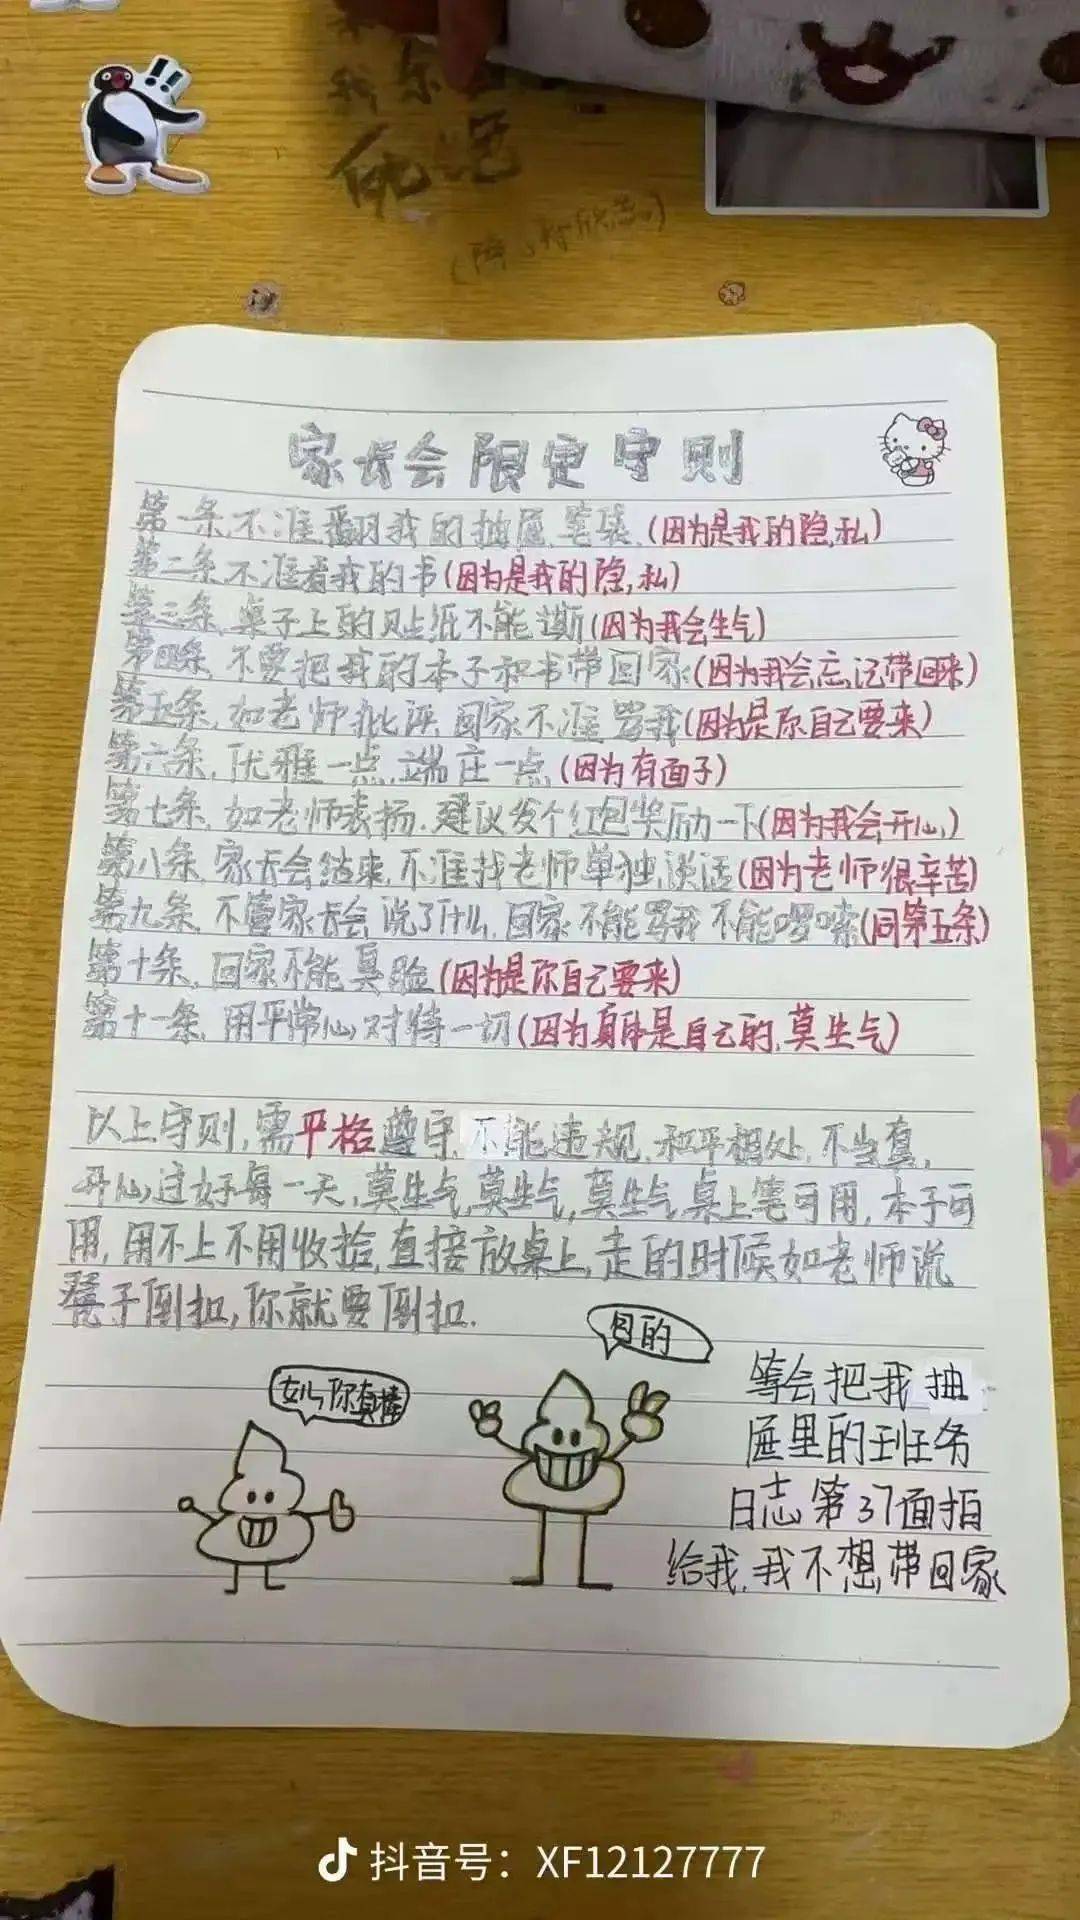 我
死绝
家长会限定守则
第一条,不准翻我的抽屉,笔袋,(因为是我的隐私)
第二条,不准看我的书(因为是我的隐私)
第三条,桌子上的贴纸不能撕(因为我会生气)
第四条,不要把我的本子和书带回家(因为我会忘记带回来)
第五条,如老师批评,回家不准骂我(因为是你自己要来)
第六条,优雅一点,端庄一点(因为有面子)
第七条,如老师表扬,建议发个红包奖励一下(因为我会开心)
第八条,家长会结束,不准找老师单独谈话(因为老师很辛苦)
第九条,不管家长会说了什么,回家不能骂我不能啰嗦(同第五条)
第十条,回家不能臭脸(因为是你自己要来)
第十一条,用平常心对待一切(因为身体是自己的,莫生气)
以上守则,需平格遵守,不能违规,和平相处,不当真,
开心过好每一天,莫生气,莫生气,莫生气,桌上笔可用,本子可
用,用不上不用收拾,直接放桌上,走的时候如老师说
凳子倒扣,你就要倒扣.
女儿你真棒
目的
等会把我抽
屉里的班务
日志第37面拍
给我,我不想带回家
抖音号：XF12127777